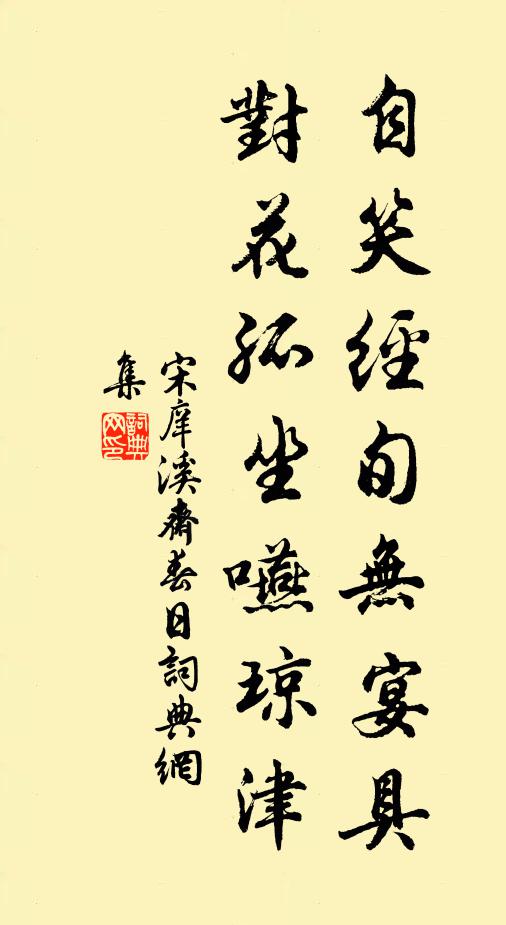 自笑經旬無宴具
對花孤坐嚥琼津
宋庠溪齋春日詞典網
集
詞典網印